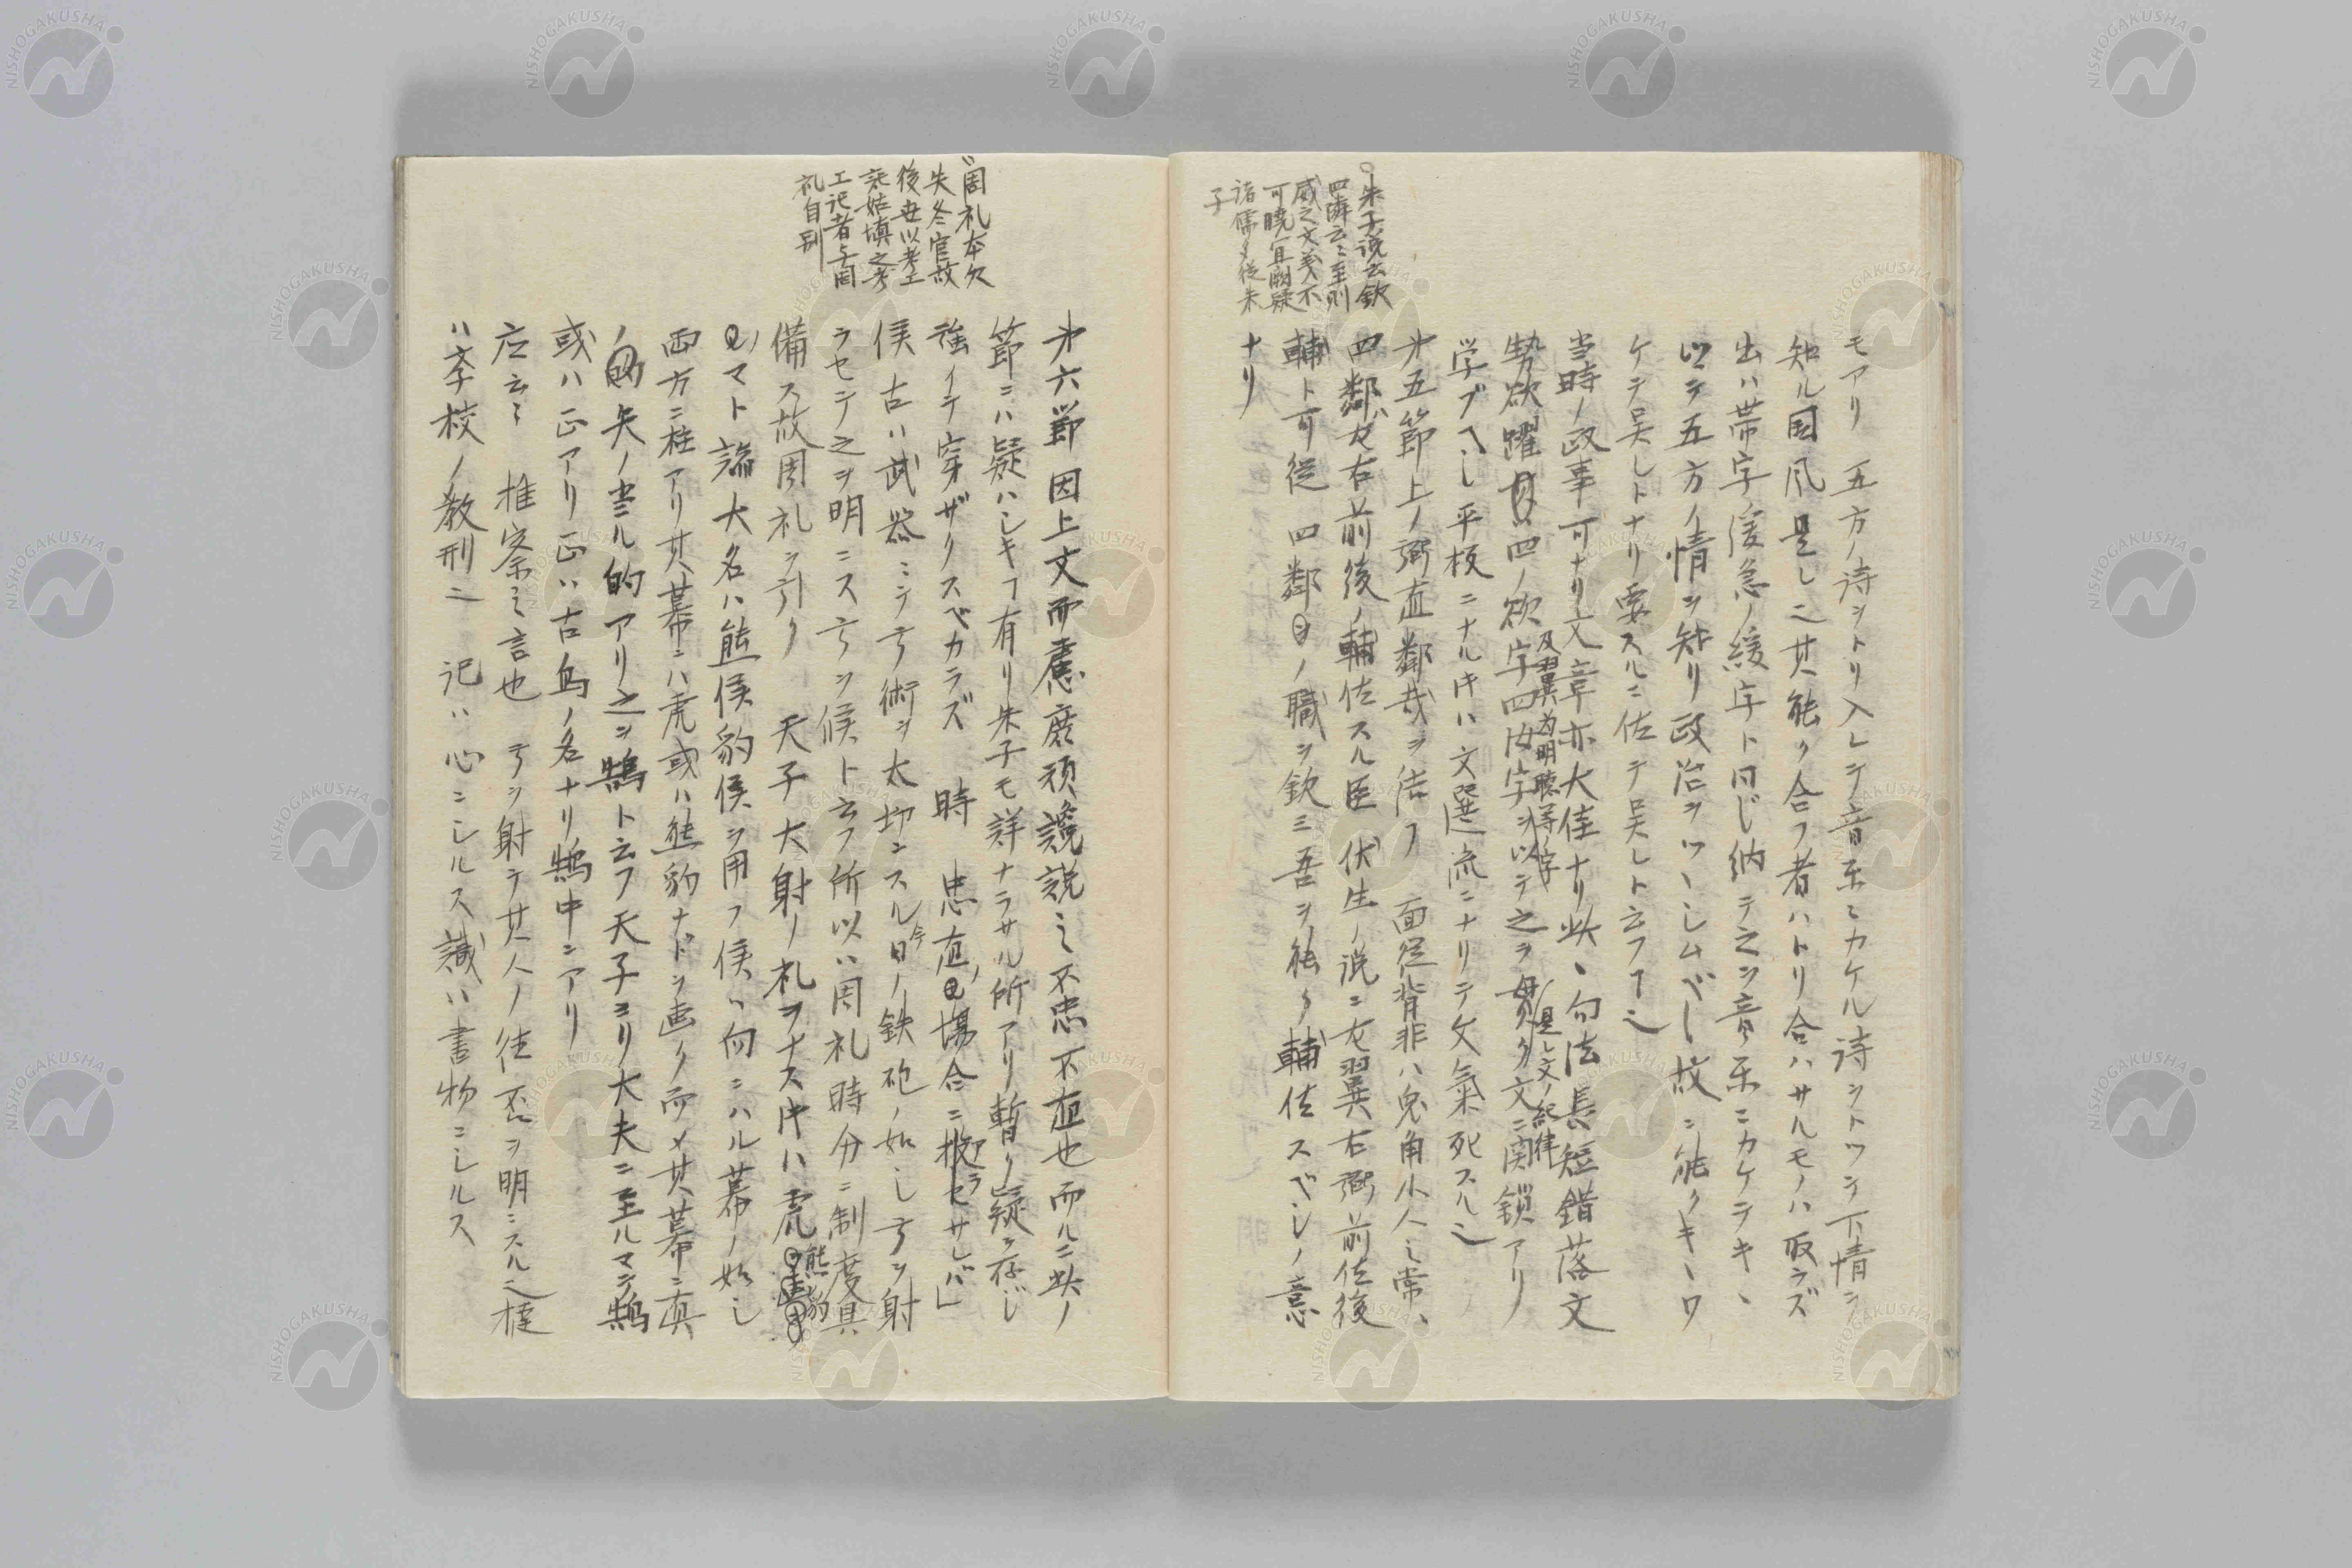 モアリ 五方ノ詩ヲトリ入レテ音楽ニカケル詩ヲトツテ下情ヲ
知ル国風是レニ其能ク合フ者ハトリ合ハサルモノハ取ラズ
出ハ帯字ノ後急ノ緩字ト同じ納テ之ヲ音楽ニカケテキヽ
以テ五方ノ情ヲ知リ政治ヲツヽシムベし故ニ能クキヽワ
ケテ呉レトナリ要スルニ佐テ呉レト云フ
当時ノ政事可ナリ文章亦大佳ナリ此ヽ句法長短錯落文
勢欲躍 四ノ欲字四汝字ヲ以テ之ヲ貫ク文ニ関鎖アリ
及翼為明聴等字
是レ文ノ紀律
学ブべし平板ニナル片ハ文選流ニナリテ文氣死スル
才五節上ノ弼直鄰哉ヲ結フ 面從背非ハ兔角小人ノ常ヽ
四鄰ハ左右前後ノ輔佐スル臣 伏生ノ説ニ左翼右弼前佐後
輔ト可従 四鄰ノ職ヲ欽ミ吾ヲ能ク輔佐スベシノ意
ナリ
○朱子説云欽
四隣云々至則
威之文義不
可曉宜闕疑
諸儒多從朱
子
才六節因上文而慮庶頑讒説之不忠不直也而ルニ此ノ
節ニハ疑ハシキフ有リ朱子モ詳ナラサル所アリ暫ク疑ヲ存じ
強イテ穿ザクスベカラズ 時 忠直ノ場合ニ セサレバ」
侯 古ハ武器ニテ弓術ヲ太切ニスル今日ノ鉄砲ノ如し弓ヲ射
ラセテ之ヲ明ニス弓ヲ候ト云フ所以ハ周礼時分ニ制度具
備ス故周礼ヲ引ク 天子大射ノ礼ヲナス片ハ虎
熊豹
マト 諸大名ハ熊侯豹侯ヲ用フ侯ハ向ニハル幕ノ如し
両方ニ柱アリ其幕ニハ虎或ハ熊豹ナドヲ画ク而メ其幕ニ真
ノ 矢ノ当ル的アリ之ヲ鵠ト云フ天子ヨリ大夫ニ至ルマテ鵠
或ハ正アリ正ハ古鳥ノ名ナリ鵠中ニアリ
応云々 推察之言也 弓ヲ射テ其人ノ徃否ヲ明ニスル 撻
ハ李校ノ教刑ニ 記ハ心ニシルス識ハ書物ニシルス
周礼本欠
失冬官故
後世以考工
記者与周
礼自別